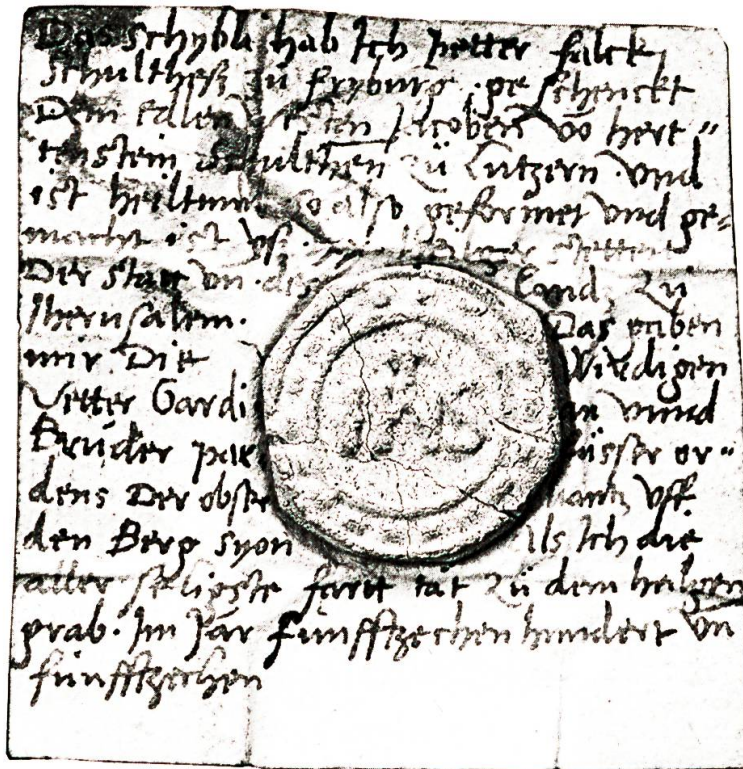 Das schybli hab Ich petter falck
Schultheß zů fryburg . geschenckt
Dem Edlen vesten Jacoben vō hert "
tenstein Schulthen zů Lutzern vnd
ist heiltum so also geformet vnd ge"
macht ist vß heiliger stetten
Der stat vn des land, zů
Jherusalem. Das gaben
mir Die Wirdigen
Vetter Gardi an vnnd
Brüder par üsser or"
dens Der obser vantz vff
den Berg syon Als Ich die
aller seligste fartt tät zů dem heilgen
grab . Im Jar funfftzechen hundert vn
funfftzechen